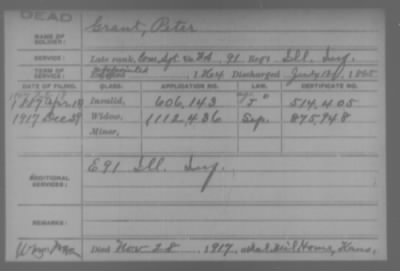 DEAD
Grant, Peter
NAME OF SOLDIER:
SERVICE: Late rank, Com. Sgt. Co. F.S., 91 Reg't Ill. Inf.
TERM OF SERVICE: Appointed , 1864 Discharged July 12, 1865
DATE OF FILING. CLASS. APPLICATION NO. CERTIFICATE NO.
Apr. Invalid, 606,143 514,405
1917 Dec 29 Widow, 1112,436 Sep. 875,948
Minor,
ADDITIONAL SERVICES: E 91 Ill. Inf.
REMARKS:
Died Nov 28, 1917, at Nat Mil Home, Kans.